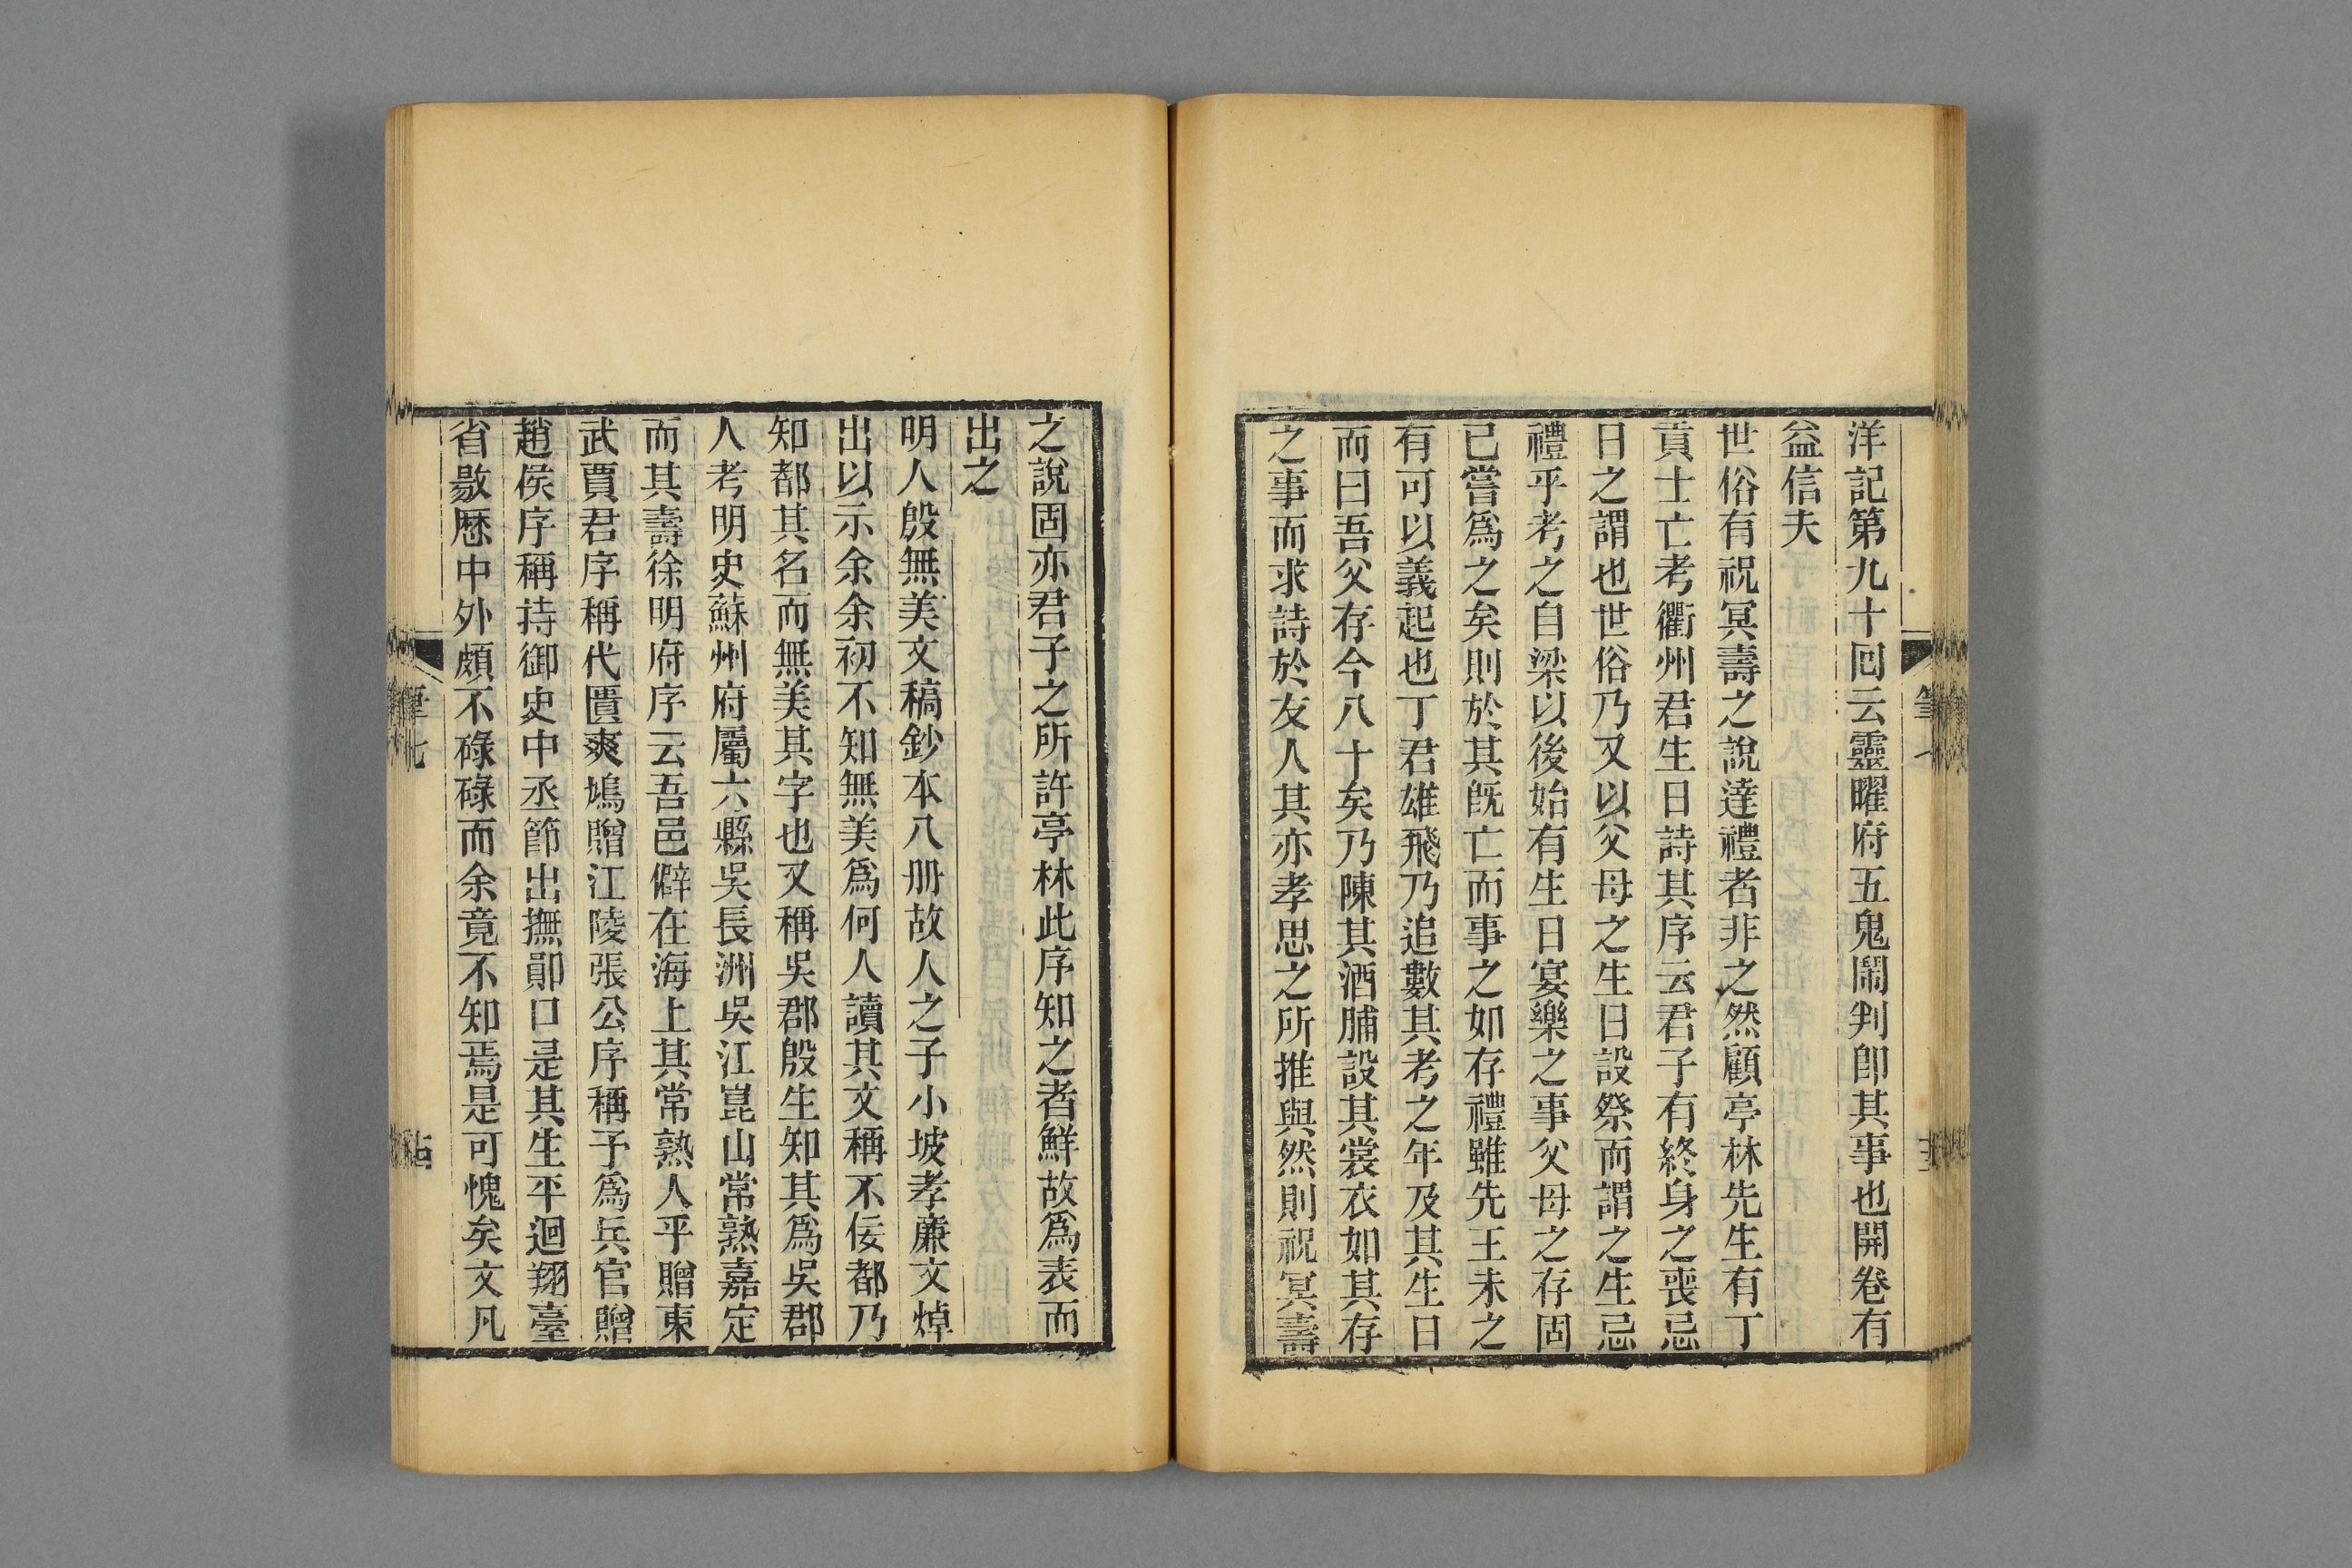 洋記第九十回云靈曜府五鬼鬧判卽其事也開卷有
益信夫
世俗有祝冥壽之說達禮者非之然顧亭林先生有丁
貢士亡考衢州君生日詩其序云君子有終身之喪忌
日之謂也世俗乃又以父母之生日設祭而謂之生忌
禮乎考之自梁以後始有生日宴樂之事父母之存固
已嘗爲之矣則於其旣亡而事之如存禮雖先王未之
有可以義起也丁君雄飛乃追數其考之年及其生日
而曰吾父存今八十矣乃陳其酒脯設其裳衣如其存
之事而求詩於友人其亦孝思之所推與然則祝冥壽
之說固亦君子之所許亭林此序知之者鮮故爲表而
出之
明人殷無美文稿鈔本八册故人之子小坡孝廉文焯
出以示余余初不知無美爲何人讀其文稱不佞都乃
知都其名而無美其字也又稱吳郡殷生知其爲吳郡
人考明史蘇州府屬六縣吳長洲吳江崑山常熟嘉定
而其壽徐明府序云吾邑僻在海上其常熟人乎贈東
武賈君序稱代匱爽鳩贈江陵張公序稱予爲兵官贈
趙侯序稱待御史中丞節出撫鄖口是其生平迴翔臺
省敭歷中外頗不碌碌而余竟不知焉是可愧矣文凡
筆七